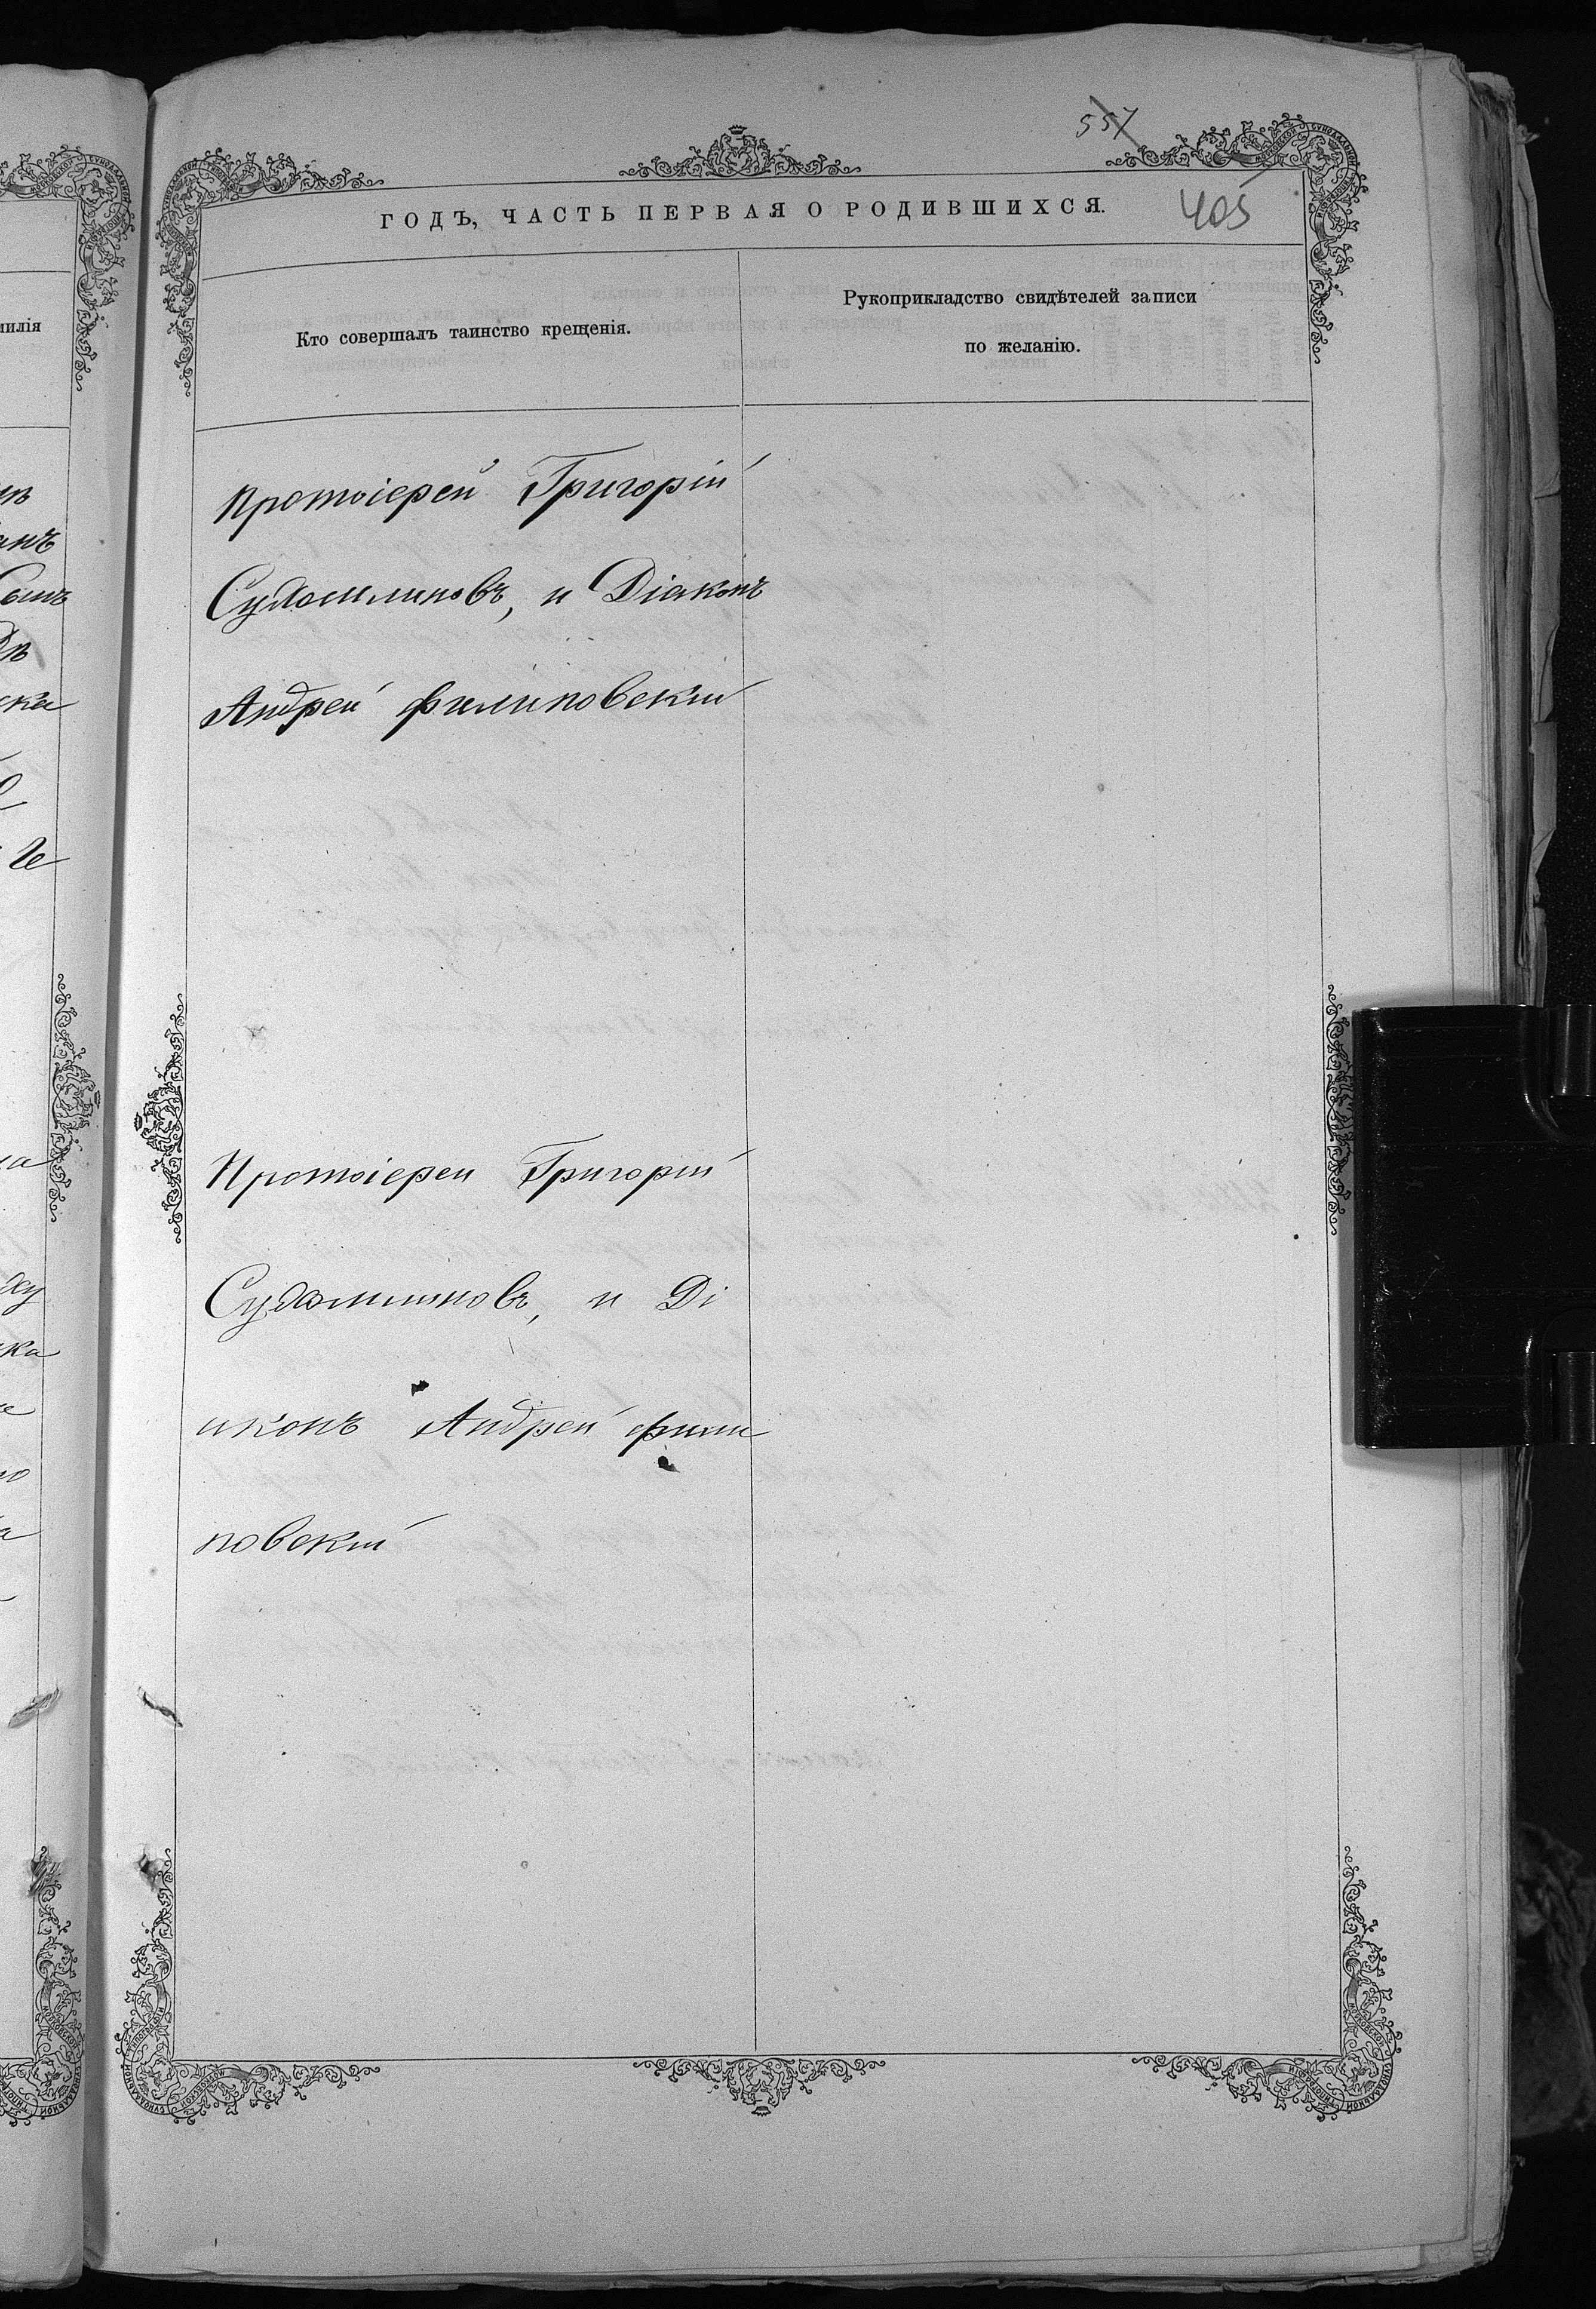 557
ГОДЪ, ЧАСТЬ ПЕРВАЯ О РОДИВШИХСЯ.
405
Кто совершалъ таинство крещенія.
Рукоприкладство свидѣтелей записи
по желанію.
Протоіерей Григорій
и Діаконъ
Андрей Филиповскій
Протоіерей Григорій
и Ді
аконъ Андрей Фили
повскій